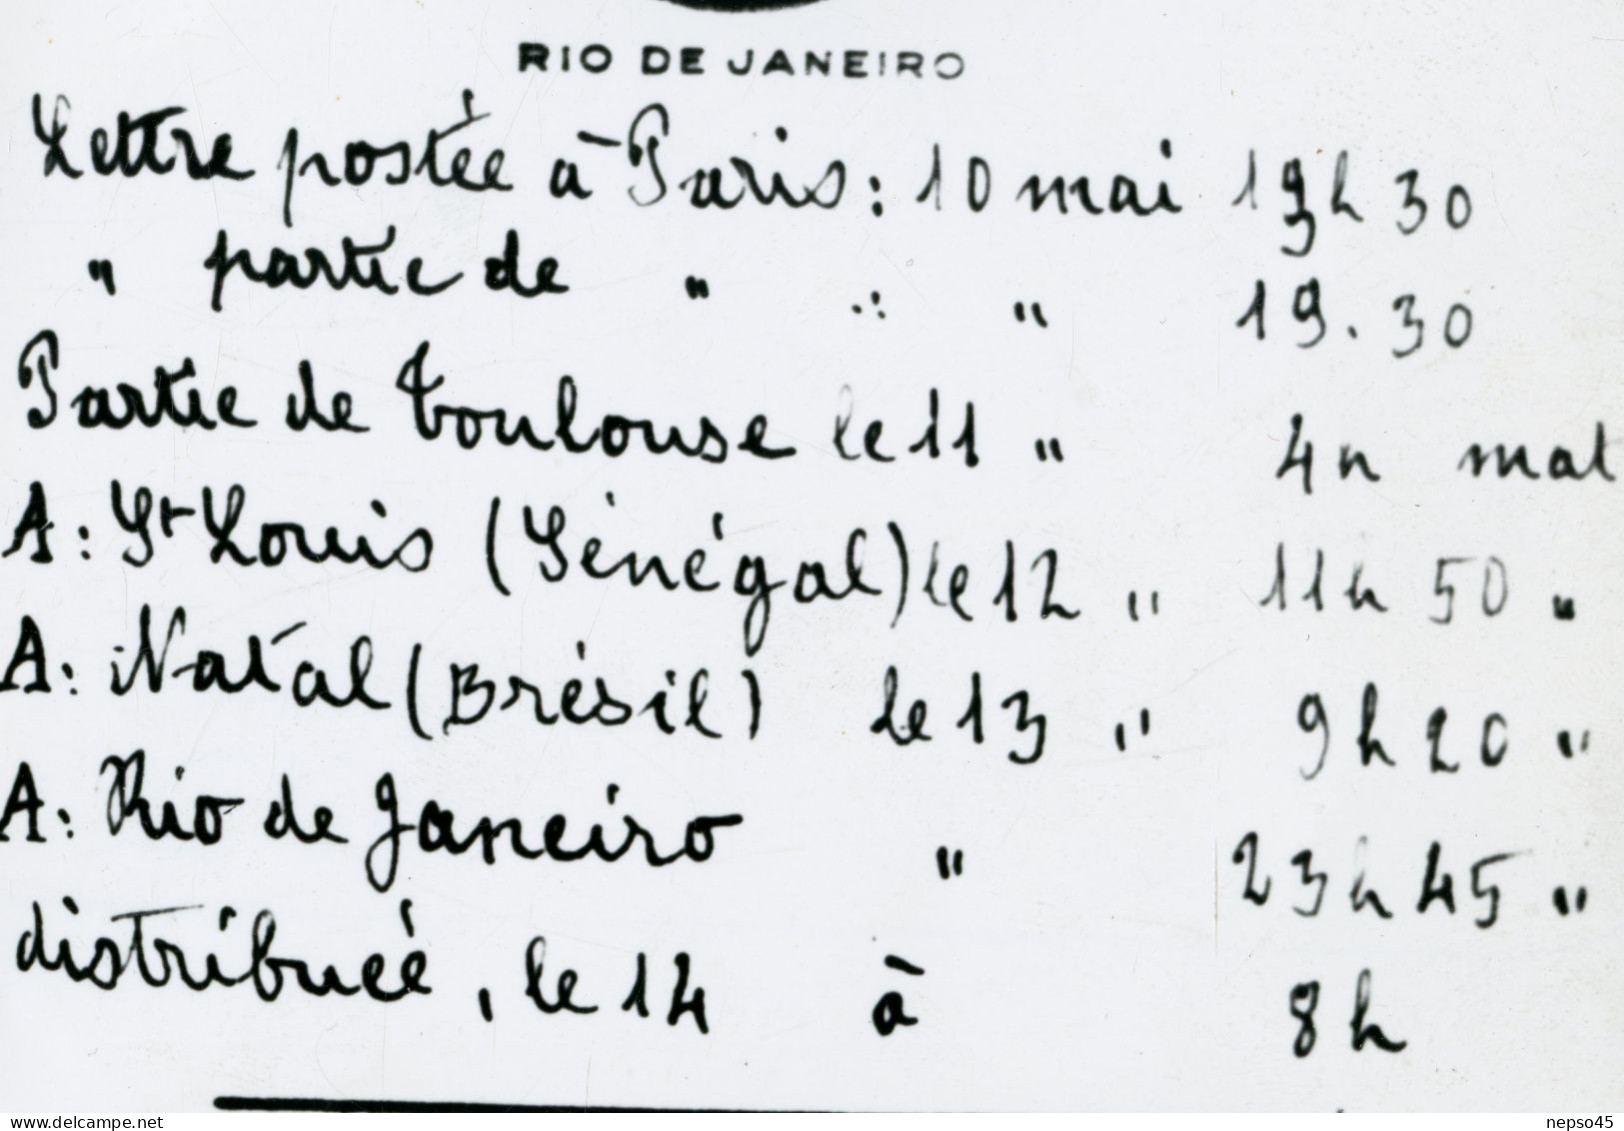 RIO DE JANEIRO
Lettre postée à Paris : 10 mai 19h 30
" partie de " : " 19.30
Partie de Toulouse le 11 " 4h mat
A : St Louis (Sénégal) le 12 " 11h 50 "
A : Natal (Brésil) le 13 " 9h 20 "
A : Rio de Janeiro " 23h 45 "
distribuée, le 14 à 8h
delcampe.net nepso45